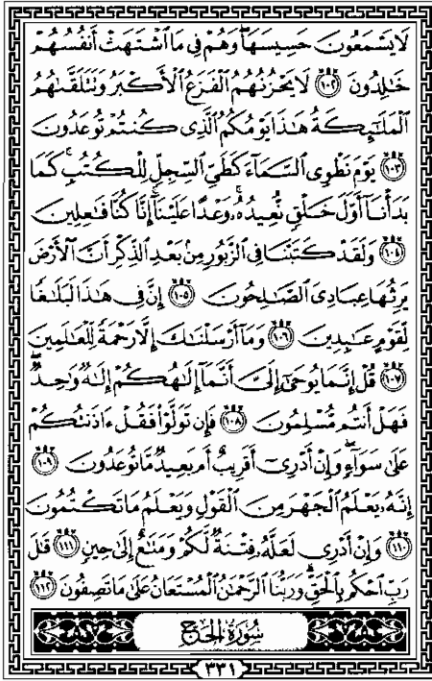 لَا يَسْمَعُونَ حَسِيسَهَا وَهُمْ فِي مَا ٱشْتَهَتْ أَنفُسُهُمْ
خَـٰلِدُونَ ١٠٢ لَا يَحْزُنُهُمُ ٱلْفَزَعُ ٱلْأَكْبَرُ وَتَتَلَقَّىٰهُمُ
ٱلْمَلَـٰٓئِكَةُ هَـٰذَا يَوْمُكُمُ ٱلَّذِى كُنتُمْ تُوعَدُونَ
١٠٣ يَوْمَ نَطْوِى ٱلسَّمَآءَ كَطَىِّ ٱلسِّجِلِّ لِلْكُتُبِ كَمَا
بَدَأْنَآ أَوَّلَ خَلْقٍ نُّعِيدُهُۥ وَعْدًا عَلَيْنَآ إِنَّا كُنَّا فَـٰعِلِينَ
١٠٤ وَلَقَدْ كَتَبْنَا فِى ٱلزَّبُورِ مِنۢ بَعْدِ ٱلذِّكْرِ أَنَّ ٱلْأَرْضَ
يَرِثُهَا عِبَادِىَ ٱلصَّـٰلِحُونَ ١٠٥ إِنَّ فِى هَـٰذَا لَبَلَـٰغًا
لِّقَوْمٍ عَـٰبِدِينَ ١٠٦ وَمَآ أَرْسَلْنَـٰكَ إِلَّا رَحْمَةً لِّلْعَـٰلَمِينَ
١٠٧ قُلْ إِنَّمَا يُوحَىٰٓ إِلَىَّ أَنَّمَآ إِلَـٰهُكُمْ إِلَـٰهٌ وَٰحِدٌ
فَهَلْ أَنتُم مُّسْلِمُونَ ١٠٨ فَإِن تَوَلَّوْا۟ فَقُلْ ءَاذَنتُكُمْ
عَلَىٰ سَوَآءٍ وَإِنْ أَدْرِىٓ أَقَرِيبٌ أَم بَعِيدٌ مَّا تُوعَدُونَ ١٠٩
إِنَّهُۥ يَعْلَمُ ٱلْجَهْرَ مِنَ ٱلْقَوْلِ وَيَعْلَمُ مَا تَكْتُمُونَ
١١٠ وَإِنْ أَدْرِى لَعَلَّهُۥ فِتْنَةٌ لَّكُمْ وَمَتَـٰعٌ إِلَىٰ حِينٍ ١١١ قَـٰلَ
رَبِّ ٱحْكُم بِٱلْحَقِّ وَرَبُّنَا ٱلرَّحْمَـٰنُ ٱلْمُسْتَعَانُ عَلَىٰ مَا تَصِفُونَ ١١٢
سُورَةُ الحَجِّ
٣٣١